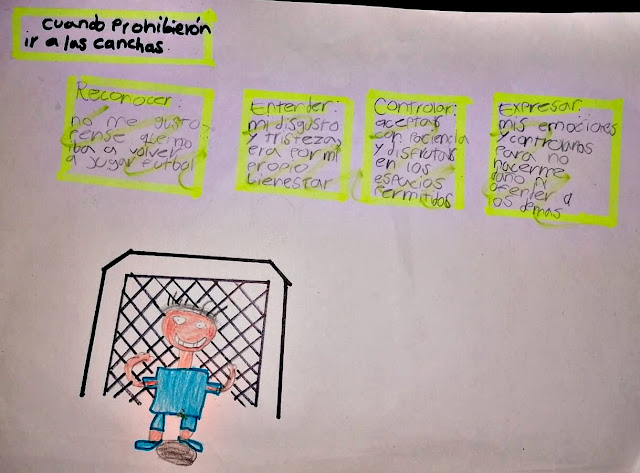 cuando Prohibierón
ir a las canchas
Reconocer:
no me gusto
Pense que no
iba a volver
a jugar futbol
Entender:
mi disgusto
y tristeza
era por mi
propio
bienestar
Controlar:
aceptar
con paciencia
y disfrutar
en los
espacios
permitidos
Expresar:
mis emociones
y controlarlas
para no
hacerme
daño ni
ofender a
los demas